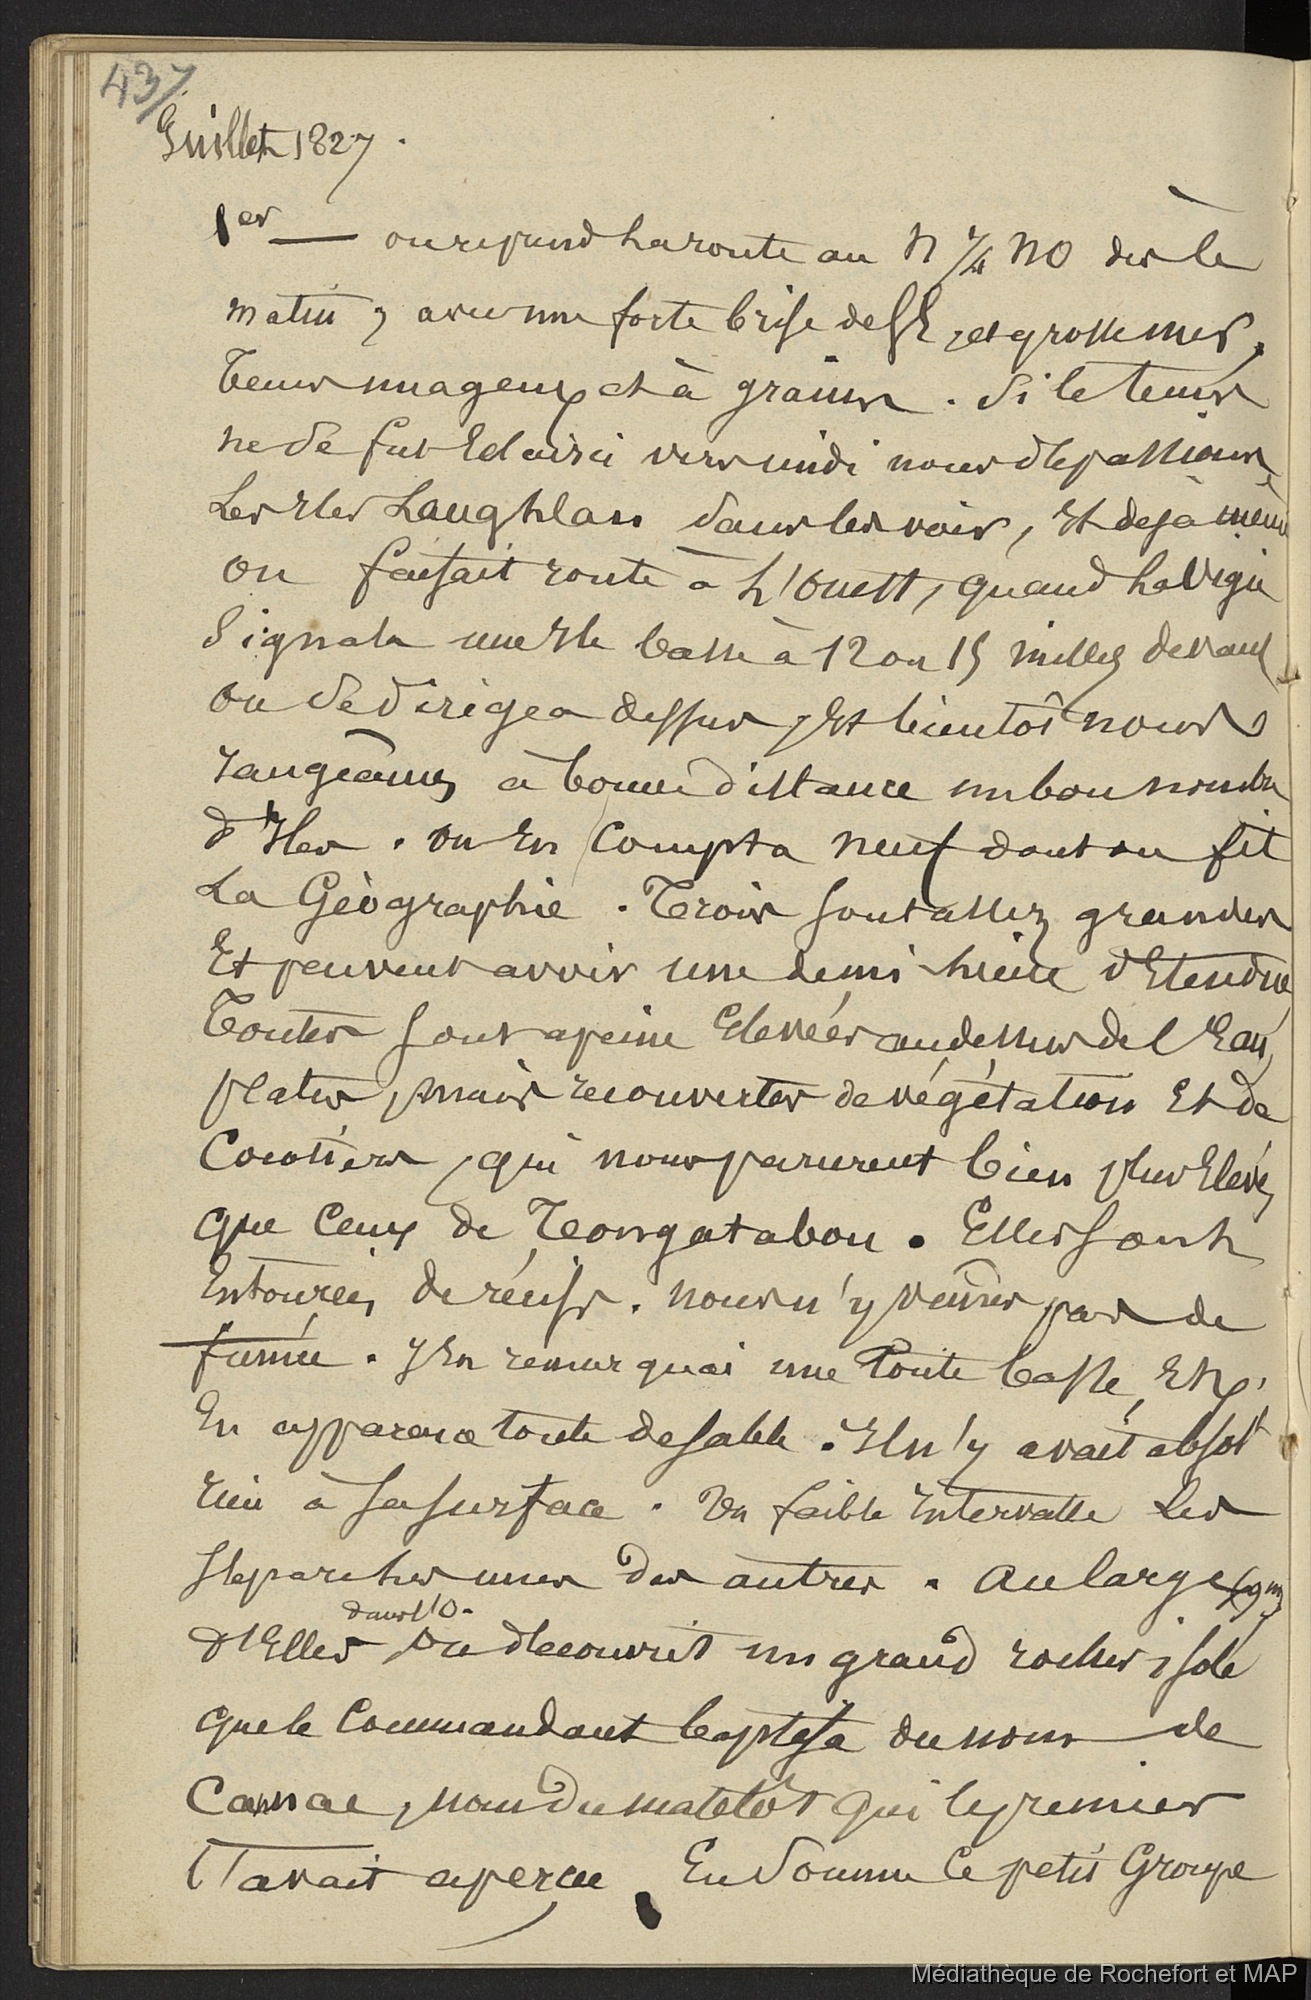 437
Juillet 1827.
1er — on reprend la route au N 1/4 NO dès le
matin, avec une forte brise de SE, et grosse mer,
tems nuageux et à grains. Si le tems
ne se fut Eclairci vers midi nous dépassions
Les Iles Laughlan sans les voir, Et dejà même
on faisait route à L'Ouest, quand la Vigie
Signala une Ile basse à 12 ou 15 milles devant
on se dirigea dessus, Et bientôt nous
rangeâmes à bonne distance un bon nombre
d'Iles. on En Compta neuf dont on fit
La Géographie. Trois sont assez grandes
Et peuvent avoir une demi lieue d'Etendue
Toutes sont apeine Elevées audessus de l'Eau,
plates, mais recouvertes de végétation Et de
Cocotiers, qui nous parurent bien plus Elevés
que Ceux de Tongatabou. Elles sont
Entourées de récifs. nous n'y vîmes pas de
fumée. J'En remarquai une toute basse, Et
En apparence toute de sable. Il n'y avait absolt
rien à sa surface. Un faible Intervalle Les
séparе les unes des autres. Au large (9m)
dans l'O.
d'Elles on découvrit un grand rocher isolé
que le Commandant baptisa du nom de
Cannac, nom du matelot qui le premier
l'avait aperçu. En Somme Ce petit Groupe
Médiathèque de Rochefort et MAP